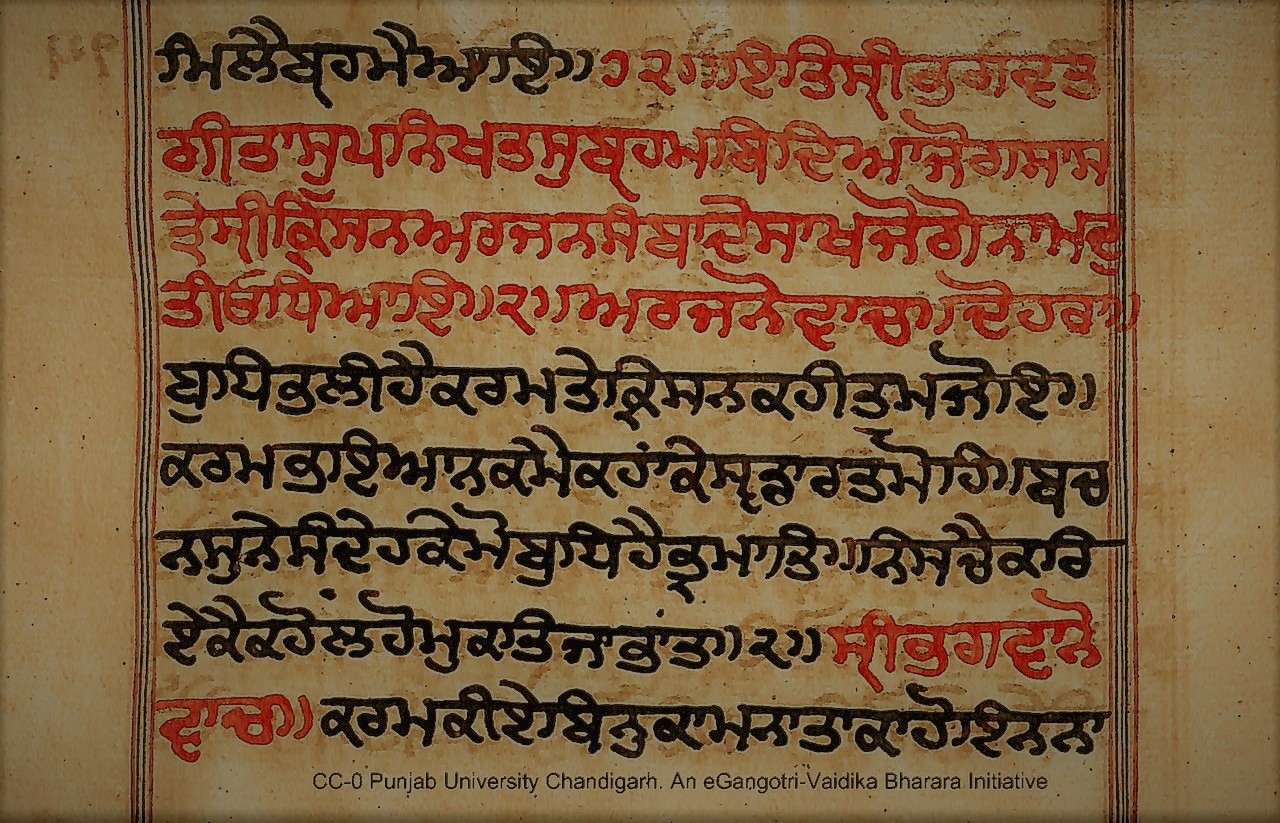 ਮਿਲੈਬ੍ਰਹਮੈਆਇ॥੭੨॥ਇਤਿਸ੍ਰੀਭਗਵਤ
ਗੀਤਾਸੁਪਨਿਖਤਸੁਬ੍ਰਹਮਬਿਦਿਆਜੋਗਸਾਸ
ਤ੍ਰੇਸ੍ਰੀਕ੍ਰਿਸਨਅਰਜਨਸੰਬਾਦੇਸਾਖਜੋਗੋਨਾਮਦੁ
ਤੀਓਧਿਆਇ॥੨॥ਅਰਜਨੋਵਾਚ॥ਦੋਹਰਾ॥
ਬੁਧਿਭਲੀਹੈਕਰਮਤੇਕ੍ਰਿਸਨਕਹੀਤਮਜੋਇ॥
ਕਰਮਭਾਇਆਨਕਮੈਕਹਾਂਕੇਸ੍ਵਡਾਰਤਮੋਹਿ॥ਬਚ
ਨਸੁਨੇਸੰਦੇਹਕੇਮੋਬੁਧਿਹੈਭ੍ਰਮਾਤਿ॥ਨਿਸਚੈਕਰਿ
ਏਕੈਕਹੋਂਲਹੋਮੁਕਤਿਜਾਭਾਂਤ॥੨॥ਸ੍ਰੀਭਗਵਾਨੋ
ਵਾਚ॥ਕਰਮਕੀਏਬਿਨੁਕਾਮਨਾਤਾਕਾਹੋਇਨਨਾ
CC-0 Punjab University Chandigarh. An eGangotri-Vaidika Bharara Initiative